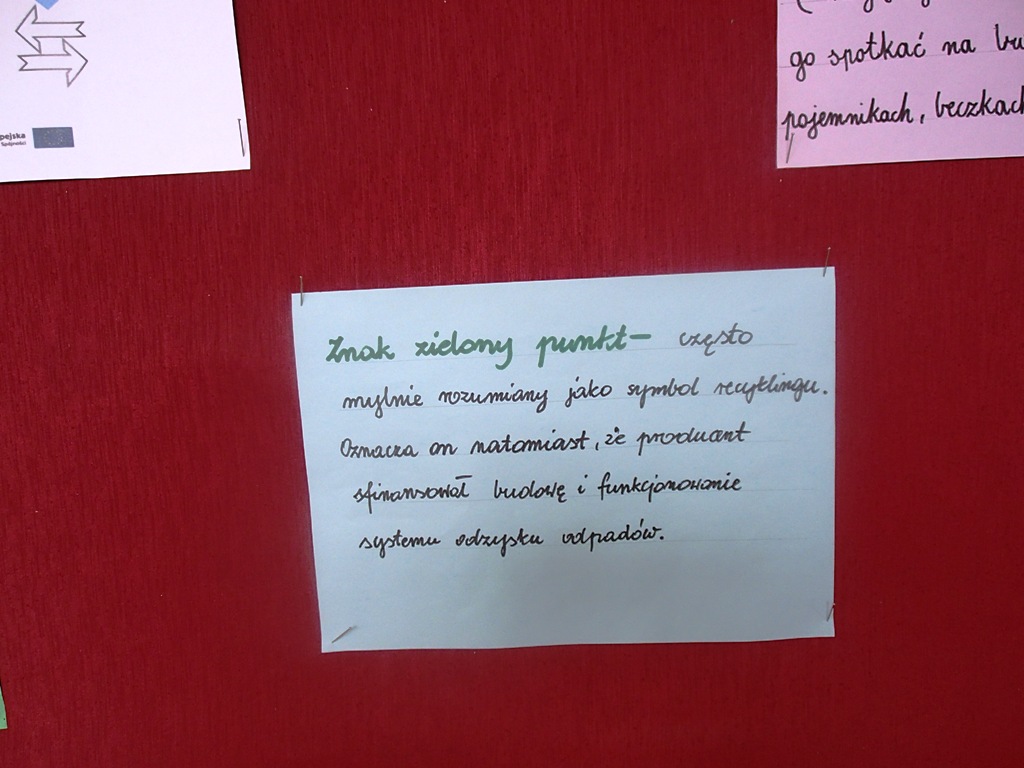 pejska
Spójności
go spotkać na
pojemnikach, beczkach
Znak zielony punkt- często
mylnie rozumiany jako symbol recyklingu.
Oznacza on natomiast, że producent
sfinansował budowę i funkcjonowanie
systemu odzysku odpadów.